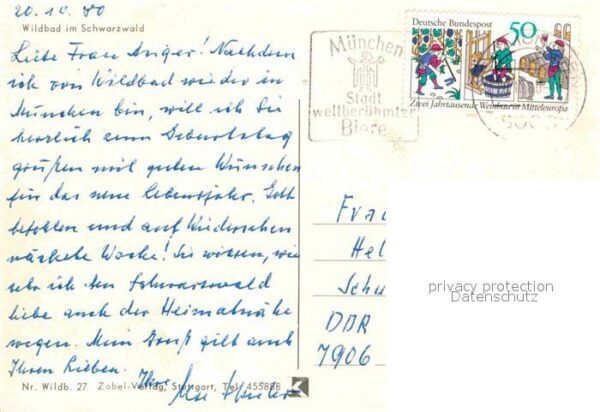 20. 10. 80
Wildbad im Schwarzwald
Liebe Frau Anger! Nachdem
ich von Wildbad wieder in
München bin, will ich Sie
herzlich zum Geburtstag
grüßen mit guten Wünschen
für das neue Lebensjahr. Gott
befohlen und auf Wiedersehen
nächste Woche! Sie wissen, wie
sehr ich den Schwarzwald
liebe auch der Heimatnähe
wegen. Mein Gruß gilt auch
Ihren Lieben.
Ihre
Nr. Wildb. 27 Zobel-Verlag, Stuttgart, Tel. 455888
K
München
Stadt
weltberühmter
Biere
Deutsche Bundespost 50
Zwei Jahrtausende Weinbau in Mitteleuropa
Frau
Hel
Schu
DDR
7906
privacy protection
Datenschutz